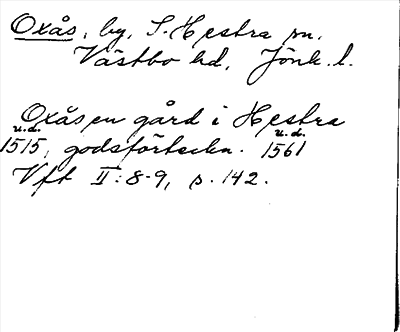 Oxås, by, S. Hestra sn.
Västbo hd, Jönk. l.
Oxås en gård i Hestra
u.d. u.d.
1515, godsförteckn. 1561
Vft II: 8-9, s. 142.